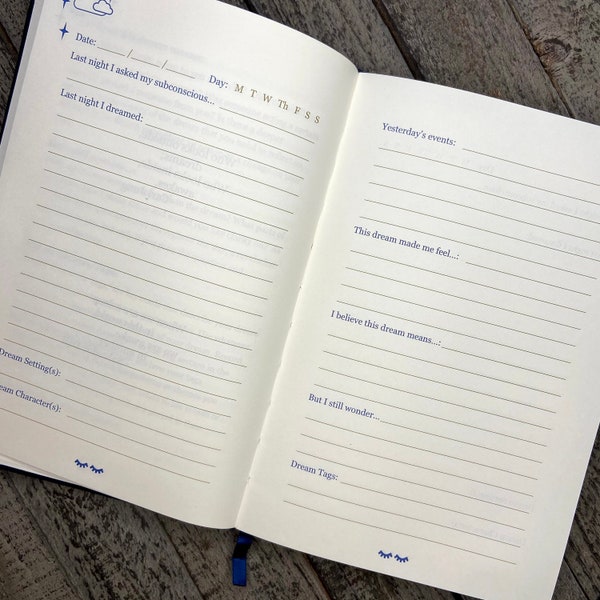 Date: ____/____/____ Day: M T W Th F S S
Last night I asked my subconscious...
Last night I dreamed:
Dream Setting(s):
eam Character(s):
Yesterday's events:
This dream made me feel...:
I believe this dream means...:
But I still wonder...
Dream Tags: